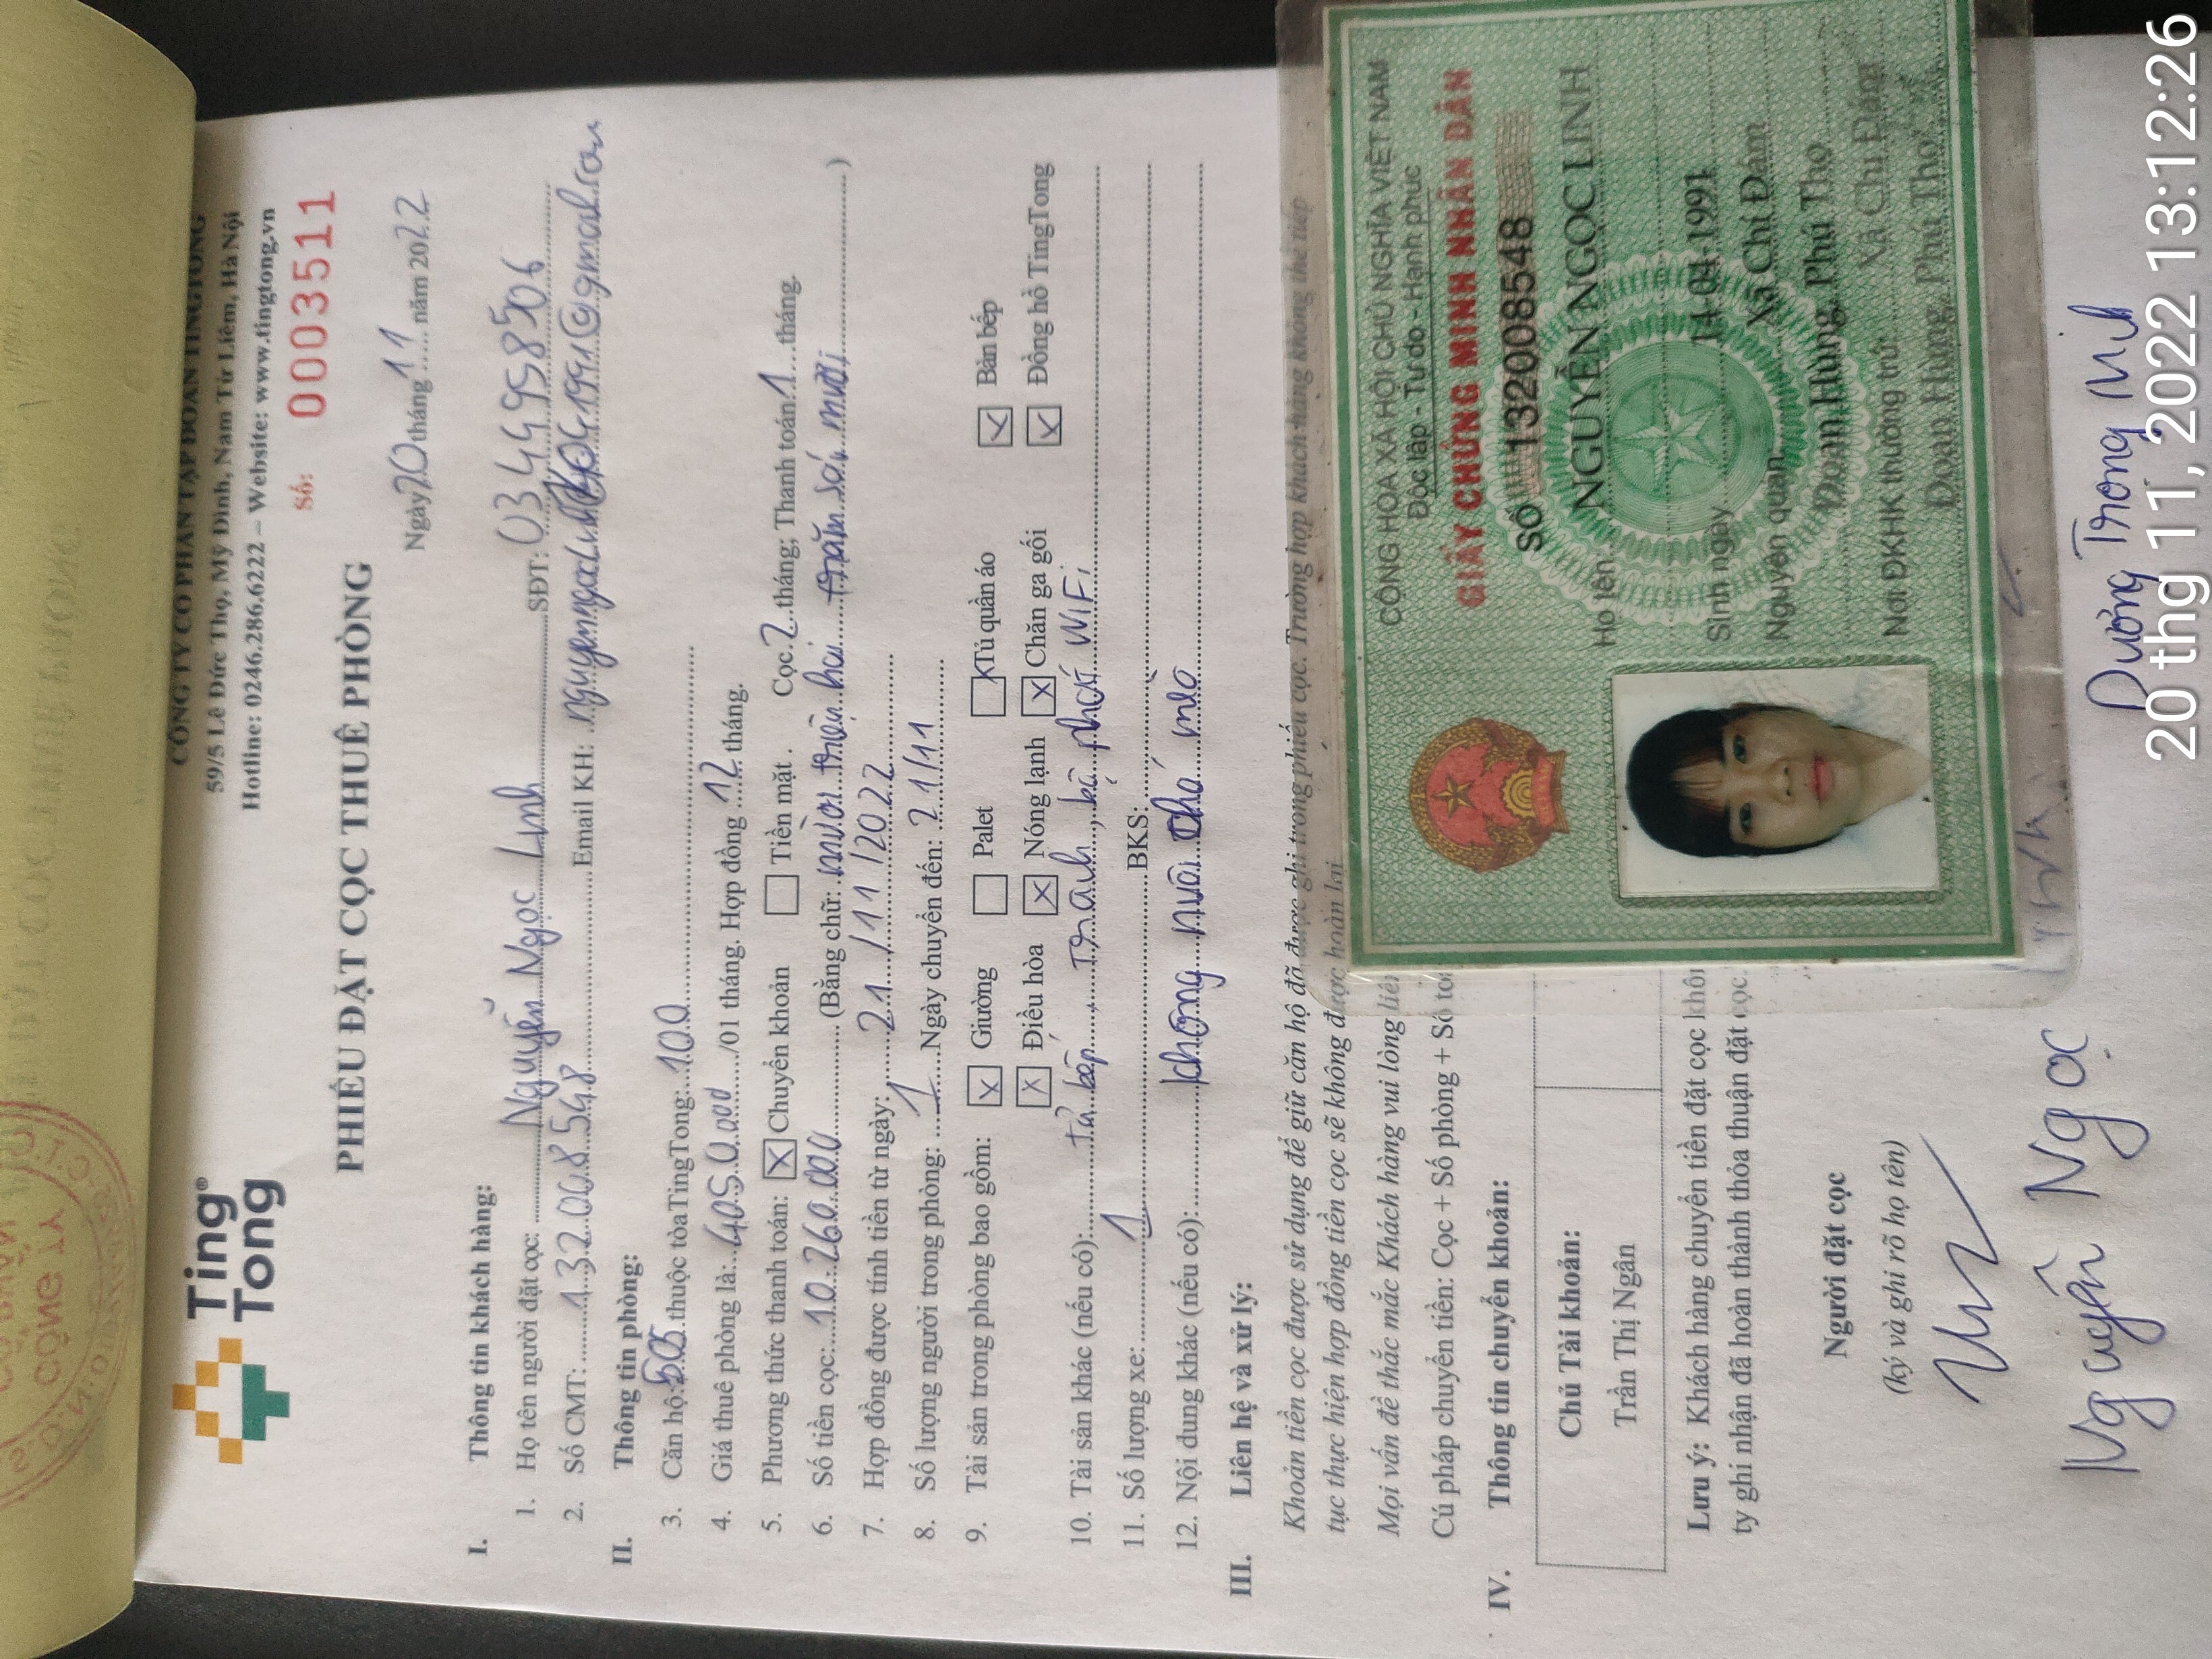 CÔNG TY CỔ PHẦN TẬP ĐOÀN TINGTONG
59/5 Lê Đức Thọ, Mỹ Đình, Nam Từ Liêm, Hà Nội
Hotline: 0246.286.6222 – Website: www.tingtong.vn
Ting Tong
Số: 0003511
PHIẾU ĐẶT CỌC THUÊ PHÒNG
Ngày 20 tháng 11 năm 2022
I. Thông tin khách hàng:
1. Họ tên người đặt cọc: Nguyễn Ngọc Linh SĐT: 0344958506
2. Số CMT: 132008548 Email KH:
II. Thông tin phòng:
3. Căn hộ: 505 thuộc tòa TingTong: 100
4. Giá thuê phòng là: 4050.000/01 tháng. Hợp đồng 12 tháng.
5. Phương thức thanh toán: Chuyển khoản Tiền mặt. Cọc 2 tháng; Thanh toán 1 tháng.
6. Số tiền cọc: 10.260.000 (Bằng chữ: mười triệu hai trăm sáu mươi)
7. Hợp đồng được tính tiền từ ngày: 21/11/2022
8. Số lượng người trong phòng: 1 Ngày chuyển đến: 21/11
9. Tài sản trong phòng bao gồm: Giường Palet Tủ quần áo Bàn bếp
Điều hòa Nóng lạnh Chăn ga gối Đồng hồ TingTong
10. Tài sản khác (nếu có): tủ bếp, Tranh, bộ phát WIFi
11. Số lượng xe: 1 BKS:
12. Nội dung khác (nếu có): không nuôi chó mèo
III. Liên hệ và xử lý:
Khoản tiền cọc được sử dụng để giữ căn hộ đã được ghi trong phiếu cọc. Trường hợp khách hàng không thể tiếp
tục thực hiện hợp đồng tiền cọc sẽ không được hoàn lại
Mọi vấn đề thắc mắc Khách hàng vui lòng liên
Cú pháp chuyển tiền: Cọc + Số phòng + Số
IV. Thông tin chuyển khoản:
Chủ Tài khoản:
Trần Thị Ngân
Lưu ý: Khách hàng chuyển tiền đặt cọc
ty ghi nhận đã hoàn thành thỏa thuận đặt cọc.
Người đặt cọc
(ký và ghi rõ họ tên)
Nguyễn Ngọc
Dương Trọng Minh
CỘNG HÒA XÃ HỘI CHỦ NGHĨA VIỆT NAM
Độc lập - Tự do - Hạnh phúc
GIẤY CHỨNG MINH NHÂN DÂN
SỐ 132008548
Họ tên NGUYỄN NGỌC LINH
Sinh ngày 14-04-1991
Nguyên quán Xã Chí Đám
Đoan Hùng, Phú Thọ
Nơi ĐKHK thường trú Xã Chí Đám
Đoan Hùng, Phú Thọ
20 thg 11, 2022 13:12:26